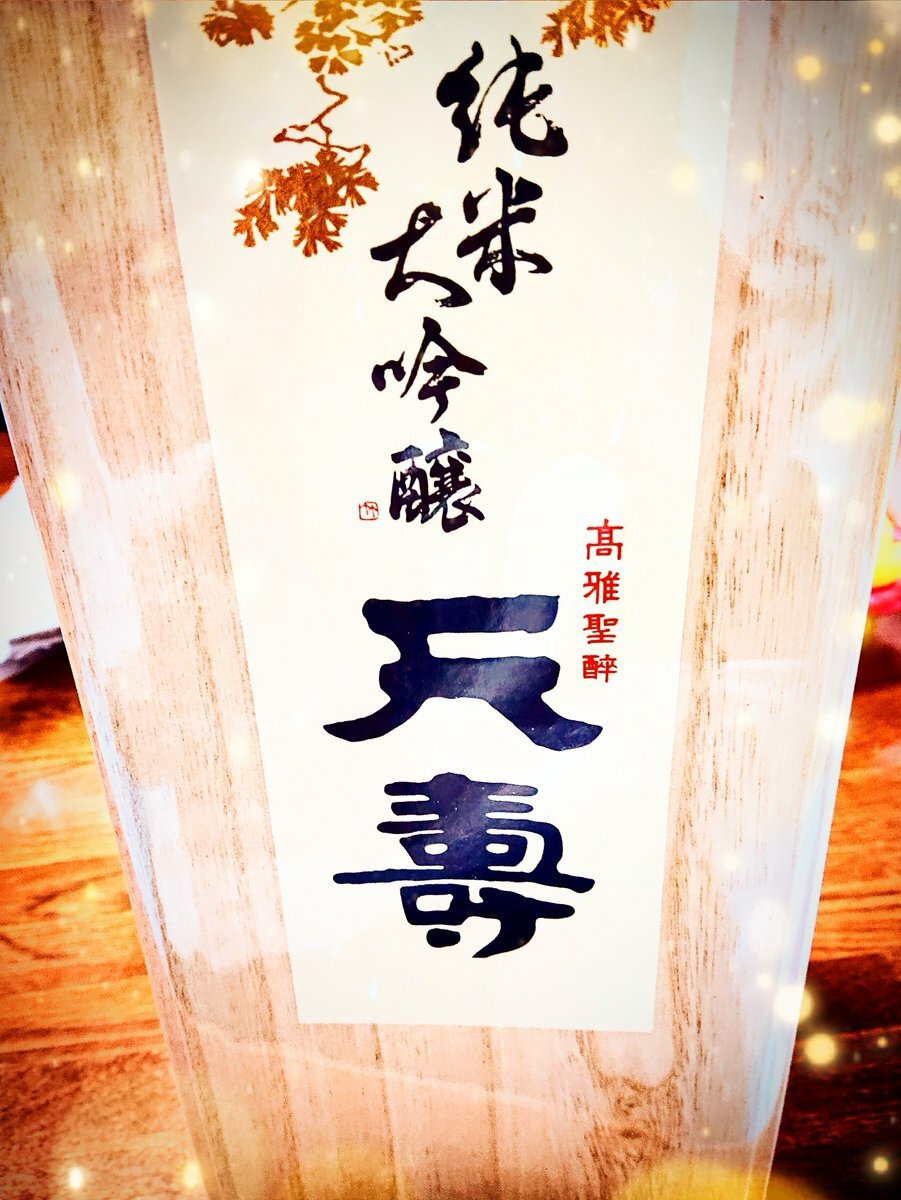 純米
大吟醸
高雅聖酔
天壽